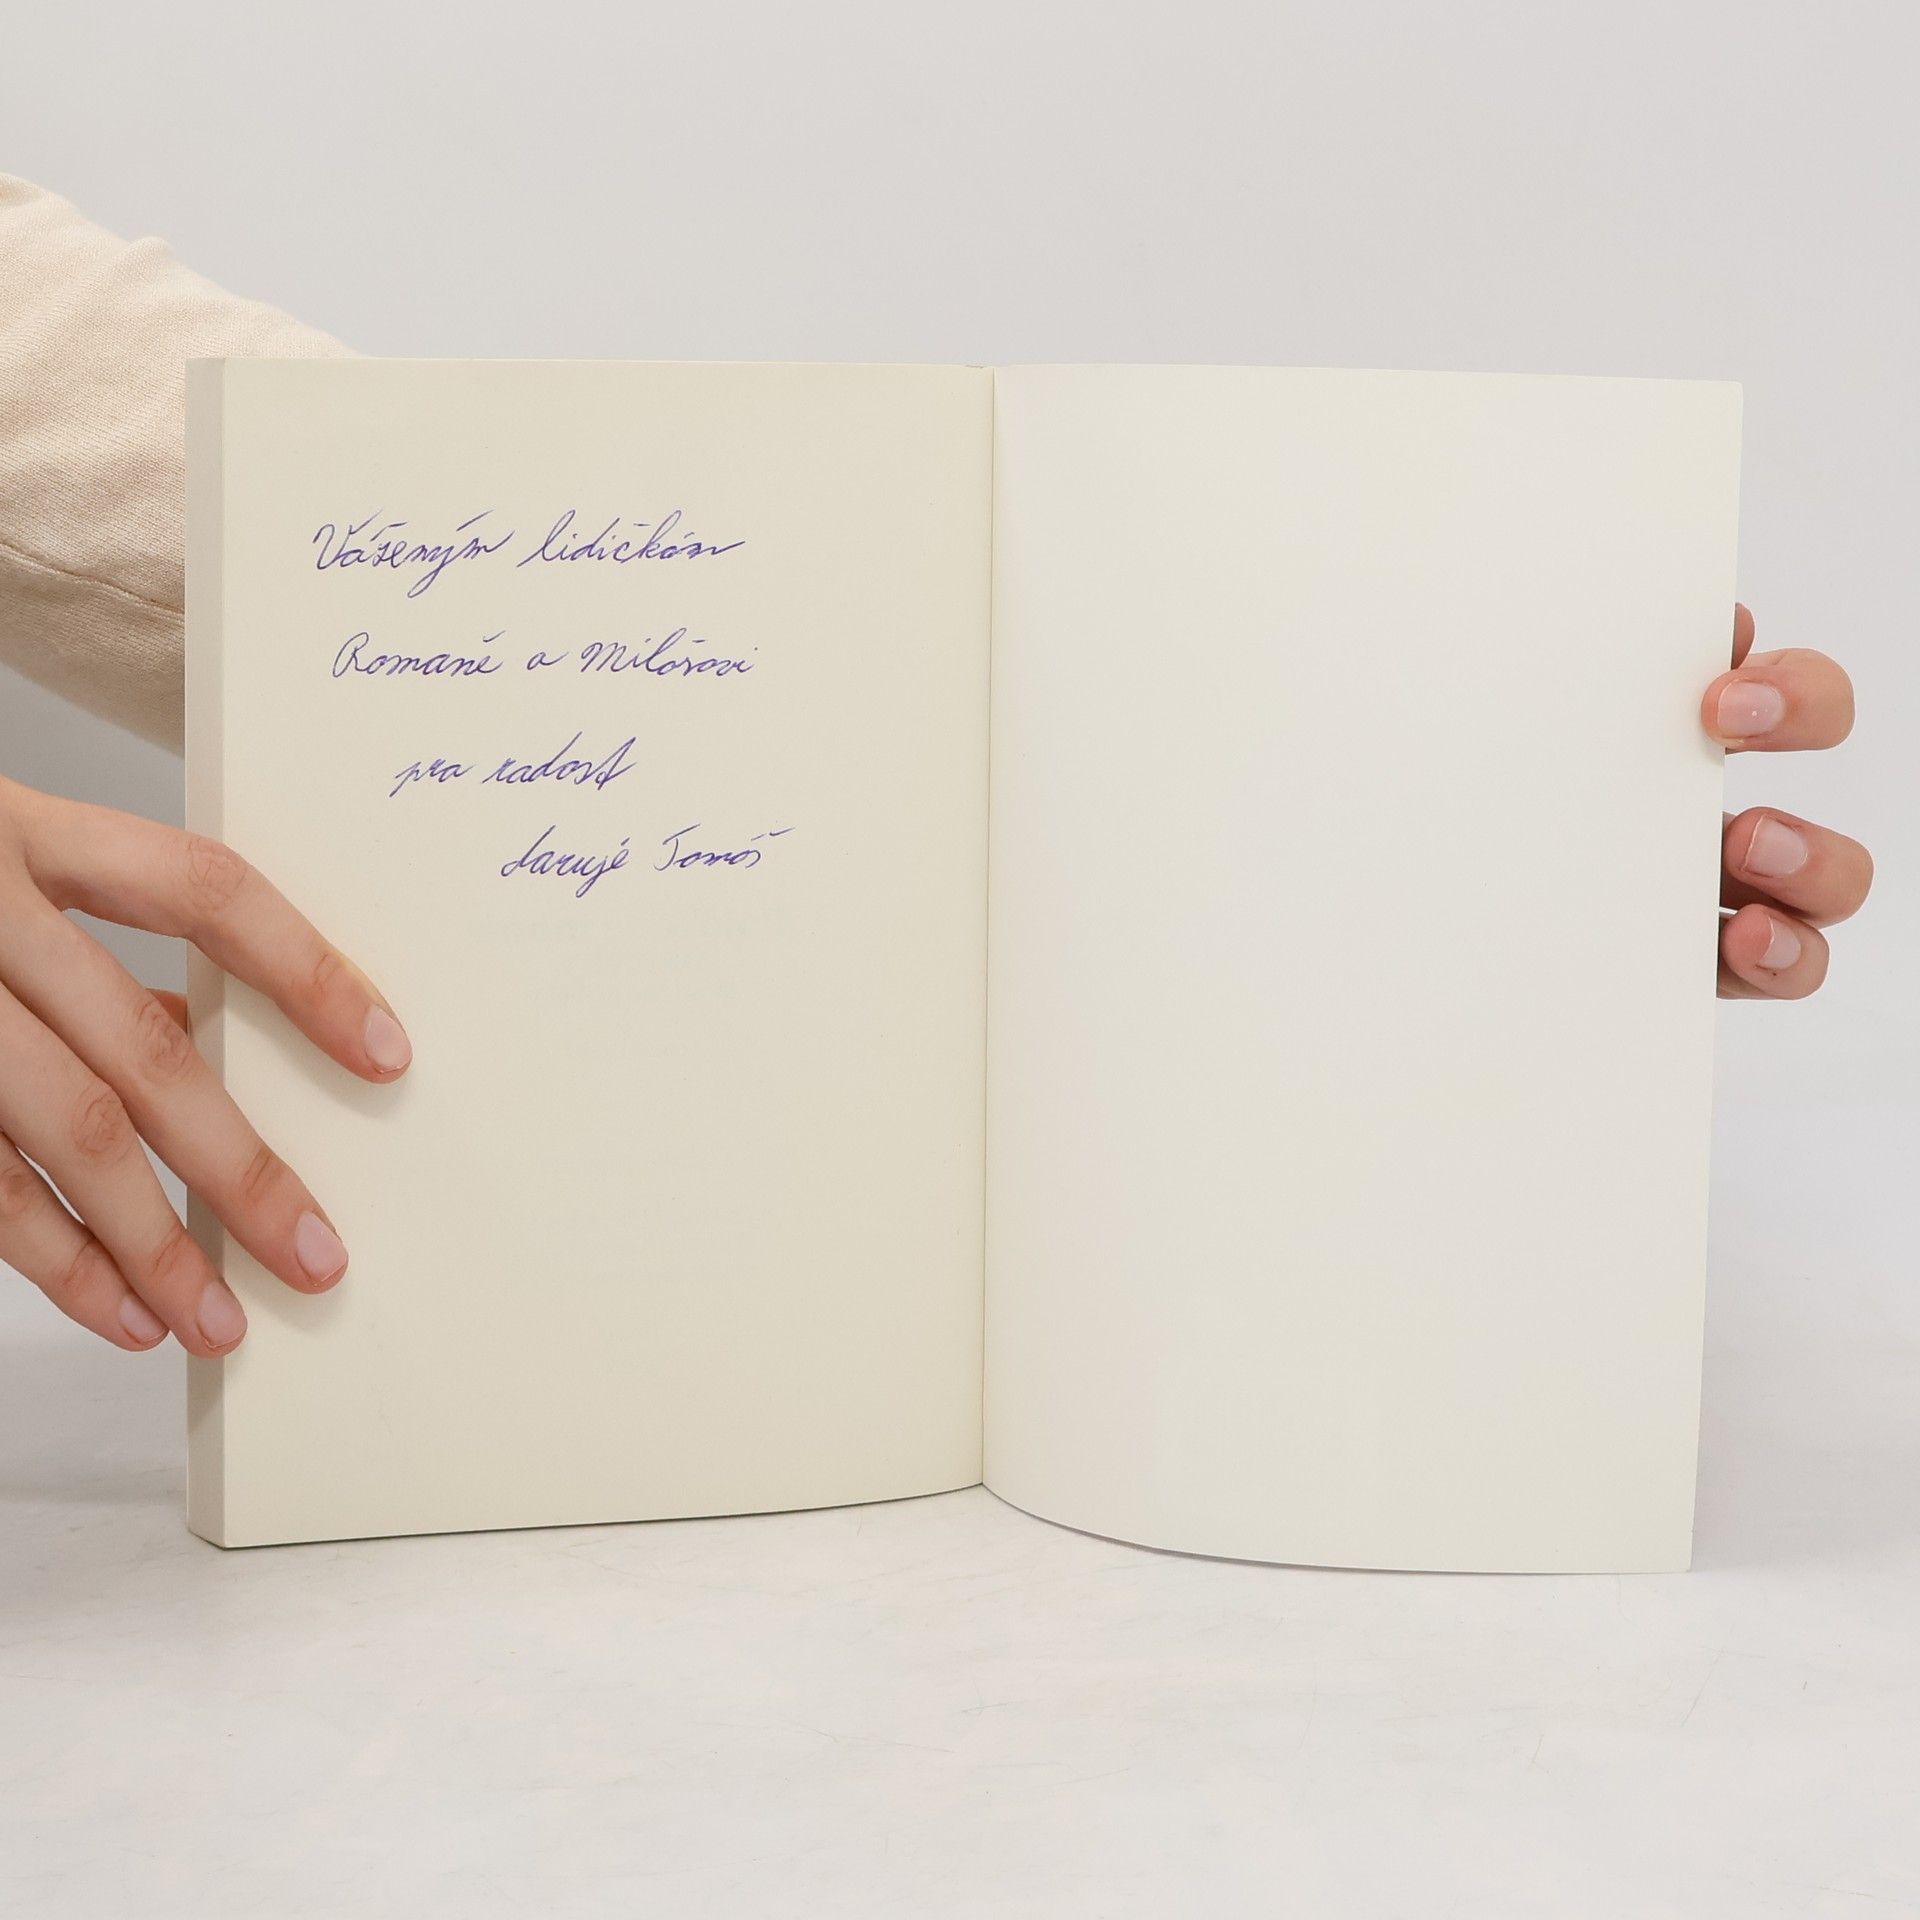 Váženým lidičkám
Romaně a Milošovi
pro radost
daruje Tomáš